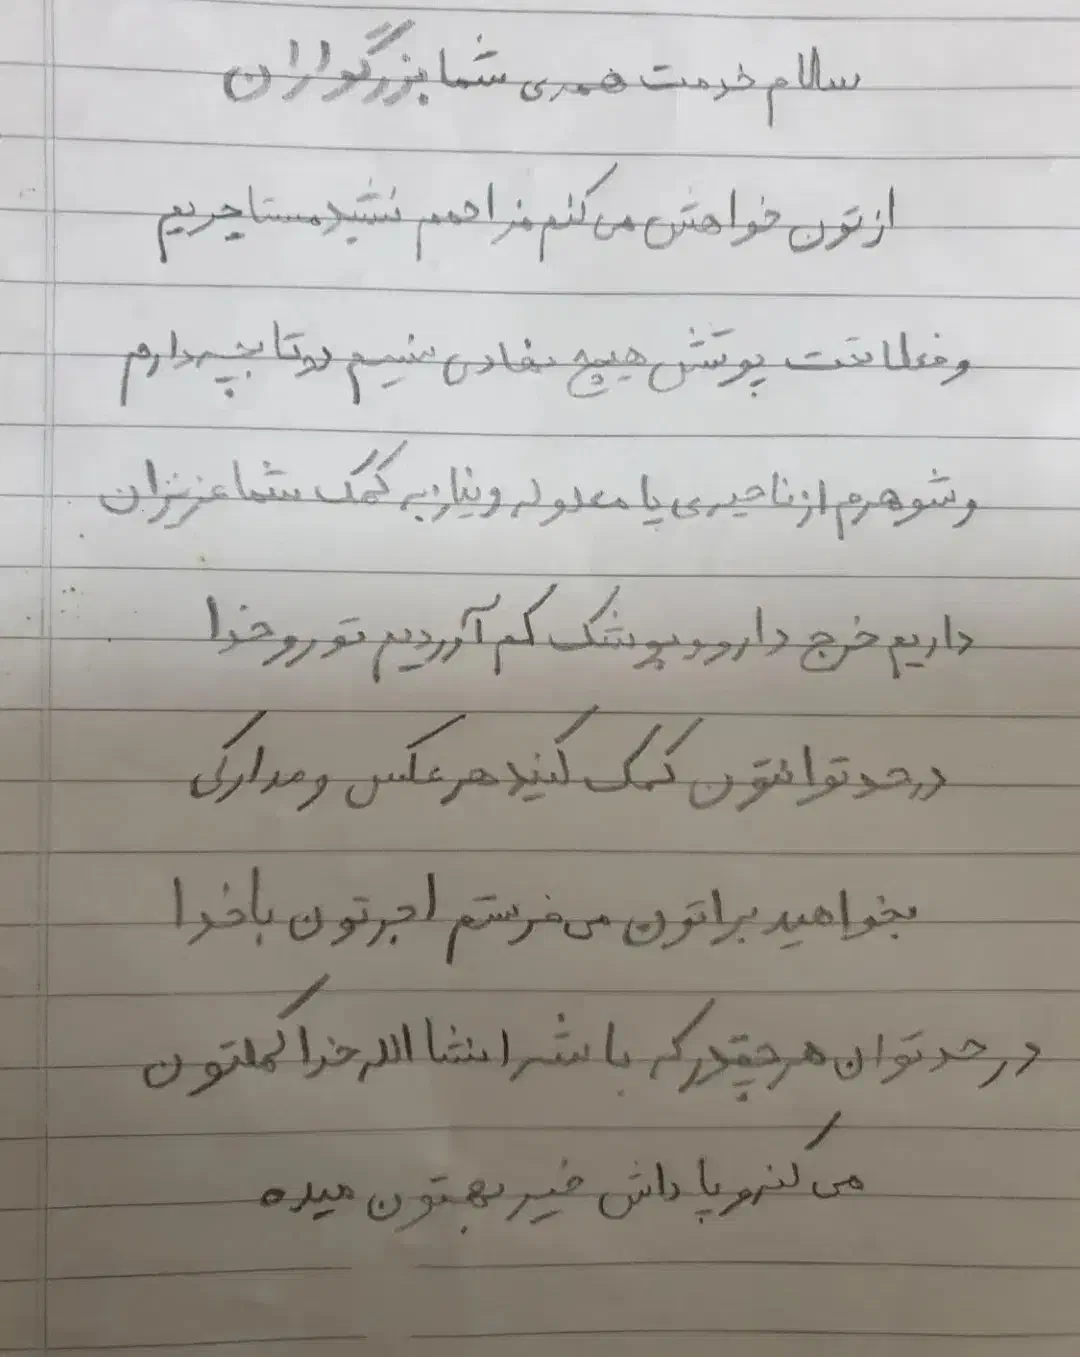 سلام خدمت همه‌ی شما بزرگواران
ازتون خواهش می کنم مزاحمم نشید مستاجریم
و فعلا تحت پوشش هیچ نهادی نیسیم دوتا بچه دارم
و شوهرم از ناحیه‌ی پا معلوله و نیاز به کمک شما عزیزان
داریم خرج دارو و پوشک کم آوردیم تورو خدا
در حد توانتون کمک کنید هر عکس و مدارکی
بخواهید براتون می فرستم اجرتون با خدا
در حد توان هر چقدر که باشه انشا الله خدا کمکتون
می کنه و پاداش خیر بهتون میده